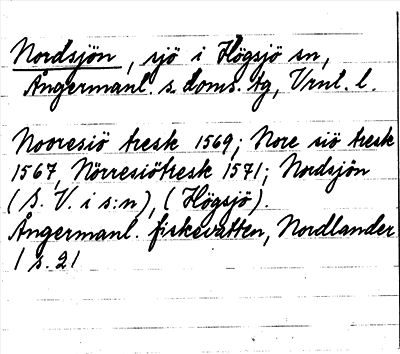 Nordsjön, sjö i Högsjö sn,
Ångermanl. s. doms. tg, Vrnl. l.
Nooresiö tresk 1569; Nore siö tresk
1567, Nörresiötresk 1571; Nordsjön
(S. V. i s:n), (Högsjö).
Ångermanl. fiskevatten, Nordlander
1 s. 21